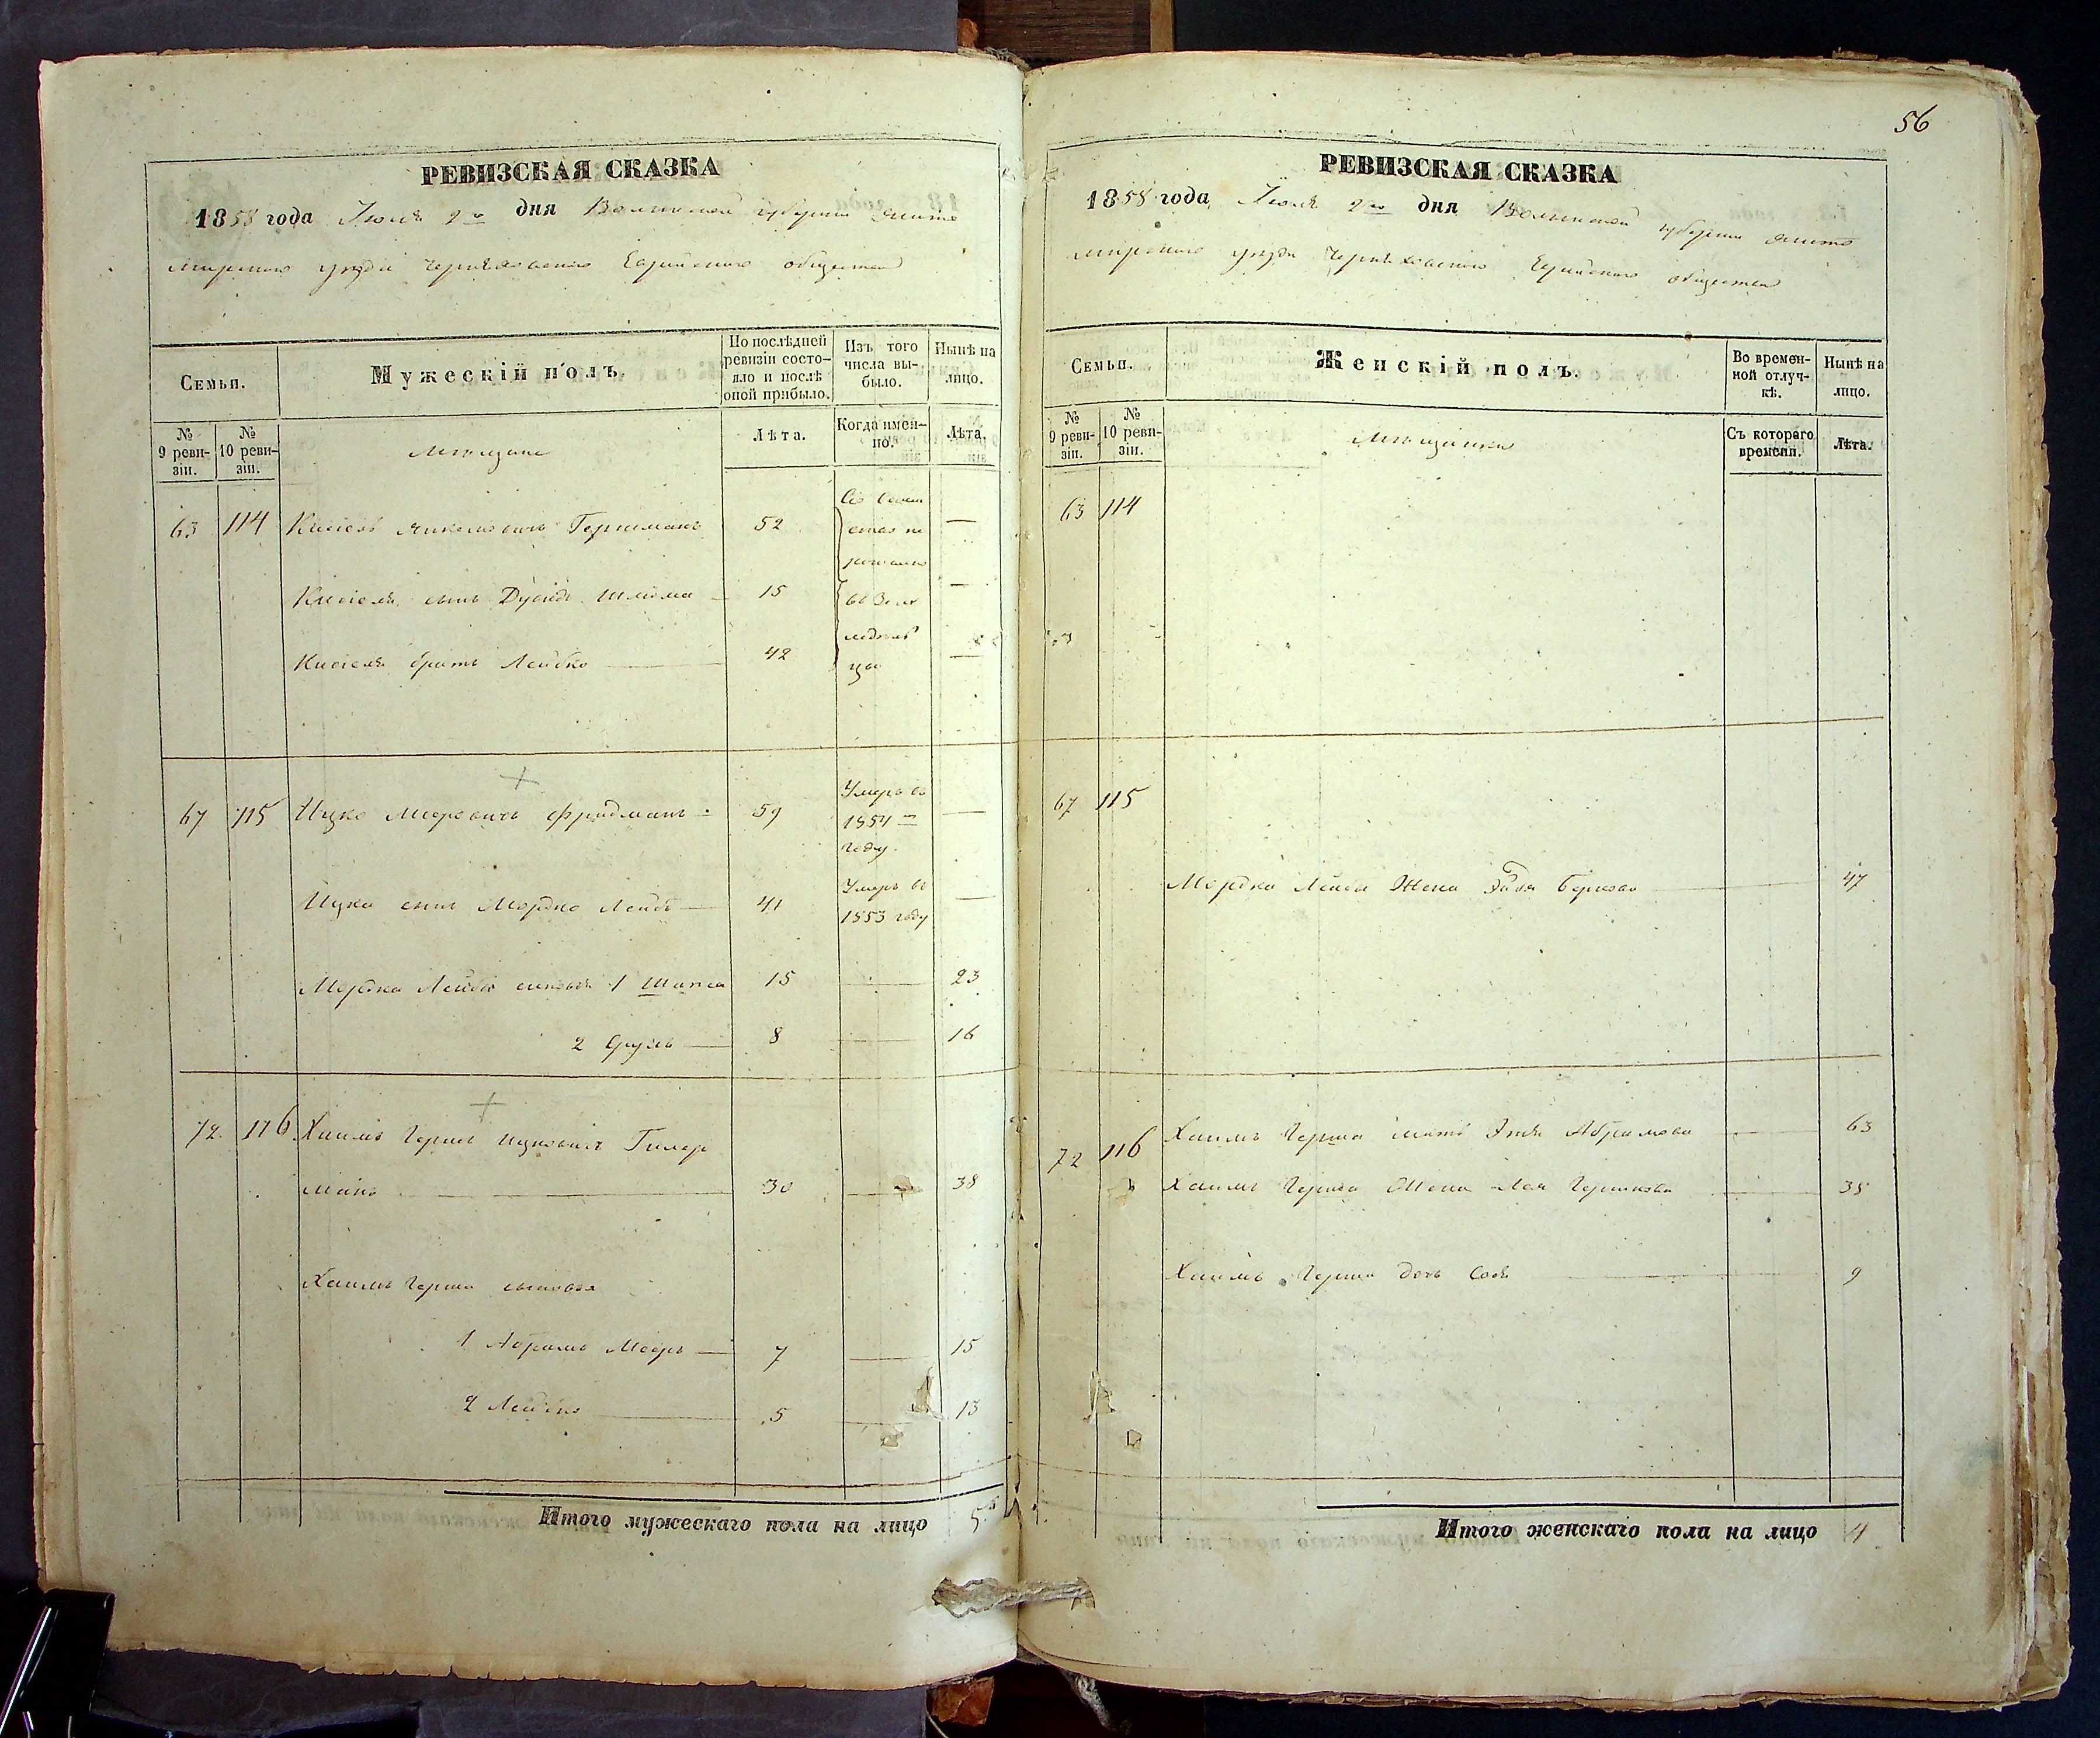 РЕВИЗСКАЯ СКАЗКА
1858 года Июля 2го дня Волынской губернии Жито
мирского уезда Черняховского Еврейского общества
Семьи.
Мужескій полъ.
По послѣдней ревизіи состояло и послѣ оной прибыло.
Изъ того числа выбыло.
Нынѣ на лицо.
№ 9 ревизіи.
№ 10 ревизіи.
Мещане
Лѣта.
Когда именно.
Лѣта.
63 114 Кисіель Янкелевичъ Гершманъ 52 —
Кисіеля сынъ Дувидъ Шлиома 15 —
Кисіеля братъ Лейбко 42 —
67 115 Ицко Мееровичъ Фридманъ 59 Умеръ въ 1854 году —
Ицка сынъ Мордко Лейба 41 Умеръ въ 1853 году —
Мордка Лейбы сыновья 1 Шапса 15 — 23
2 Сруль 8 — 16
72 116 Хаимъ Гершъ Ицковичъ Гилер
манъ 30 — 38
Хаимъ Герша сыновья
1 Абрамъ Мееръ 7 — 15
2 Лейбко 5 — 13
Итого мужескаго пола на лицо 5
56
РЕВИЗСКАЯ СКАЗКА
1858 года Июля 2го дня Волынской губернии Жито
мирского уезда Черняховского Еврейского общества
Семьи.
Женскій полъ.
Во временной отлучкѣ.
Нынѣ на лицо.
№ 9 ревизіи.
№ 10 ревизіи.
Мещанки
Съ котораго времени.
Лѣта.
63 114
67 115
Мордка Лейбы Жена Эйдля Беркова 47
72 116 Хаимъ Герша мать Этя Абрамова 63
Хаимъ Герша Жена Лея Гершкова 35
Хаимъ Герша дочь Сося 9
Итого женскаго пола на лицо 4